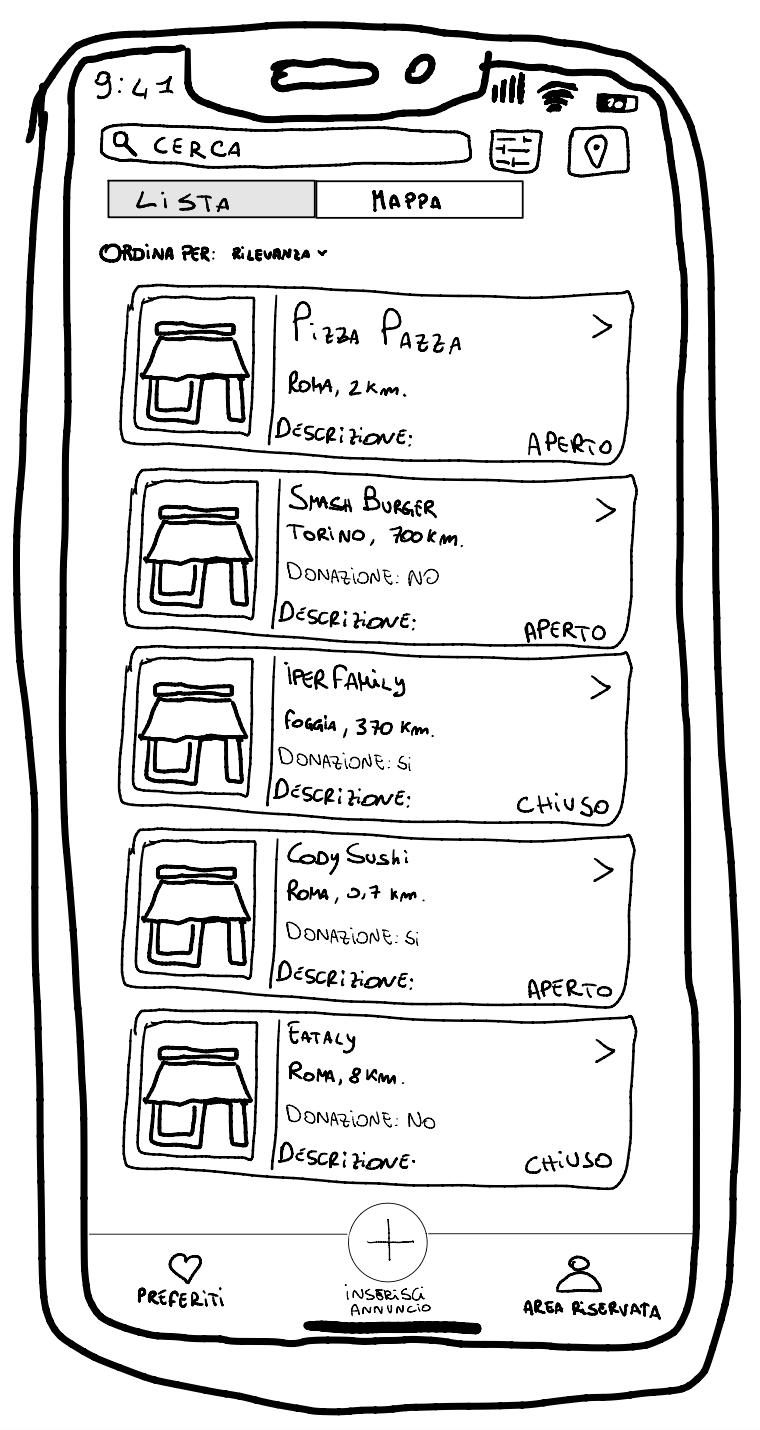 9:41
CERCA
LiSTA
MAPPA
ORDINA PER: RiLEVANZA
PiZZA PAZZA
ROMA, 2 Km.
DESCRiZiONE:
APERTO
SMASH BURGER
TORiNO, 700 Km.
DONAZiONE: NO
DESCRiZiONE:
APERTO
iPER FAMiLy
FOGGiA, 370 Km.
DONAZiONE: Si
DESCRiZiONE:
CHiUSO
CODy SUShi
ROMA, 0,7 Km.
DONAZiONE: Si
DESCRiZiONE:
APERTO
EATALy
ROMA, 8 Km.
DONAZiONE: No
DESCRiZiONE:
CHiUSO
PREFERiTi
iNSERiSCi
ANNUNCiO
AREA RiSERVATA